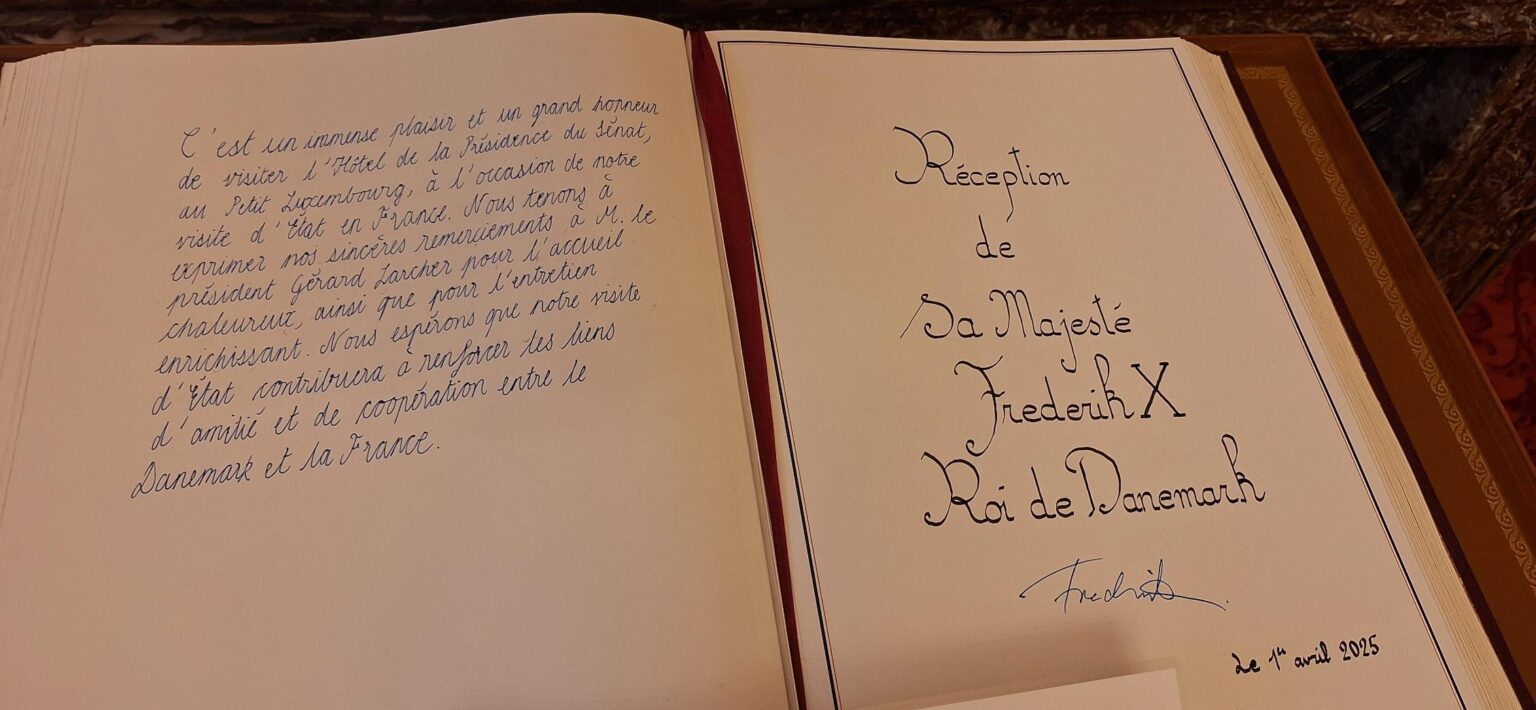 C'est un immense plaisir et un grand honneur
de visiter l'Hôtel de la Présidence du Sénat,
au Petit Luxembourg, à l'occasion de notre
visite d'État en France. Nous tenons à
exprimer nos sincères remerciements à M. le
président Gérard Larcher pour l'accueil
chaleureux, ainsi que pour l'entretien
enrichissant. Nous espérons que notre visite
d'État contribuera à renforcer les liens
d'amitié et de coopération entre le
Danemark et la France.
Réception
de
Sa Majesté
Frederik X
Roi de Danemark
Frederik
Le 1er avril 2025